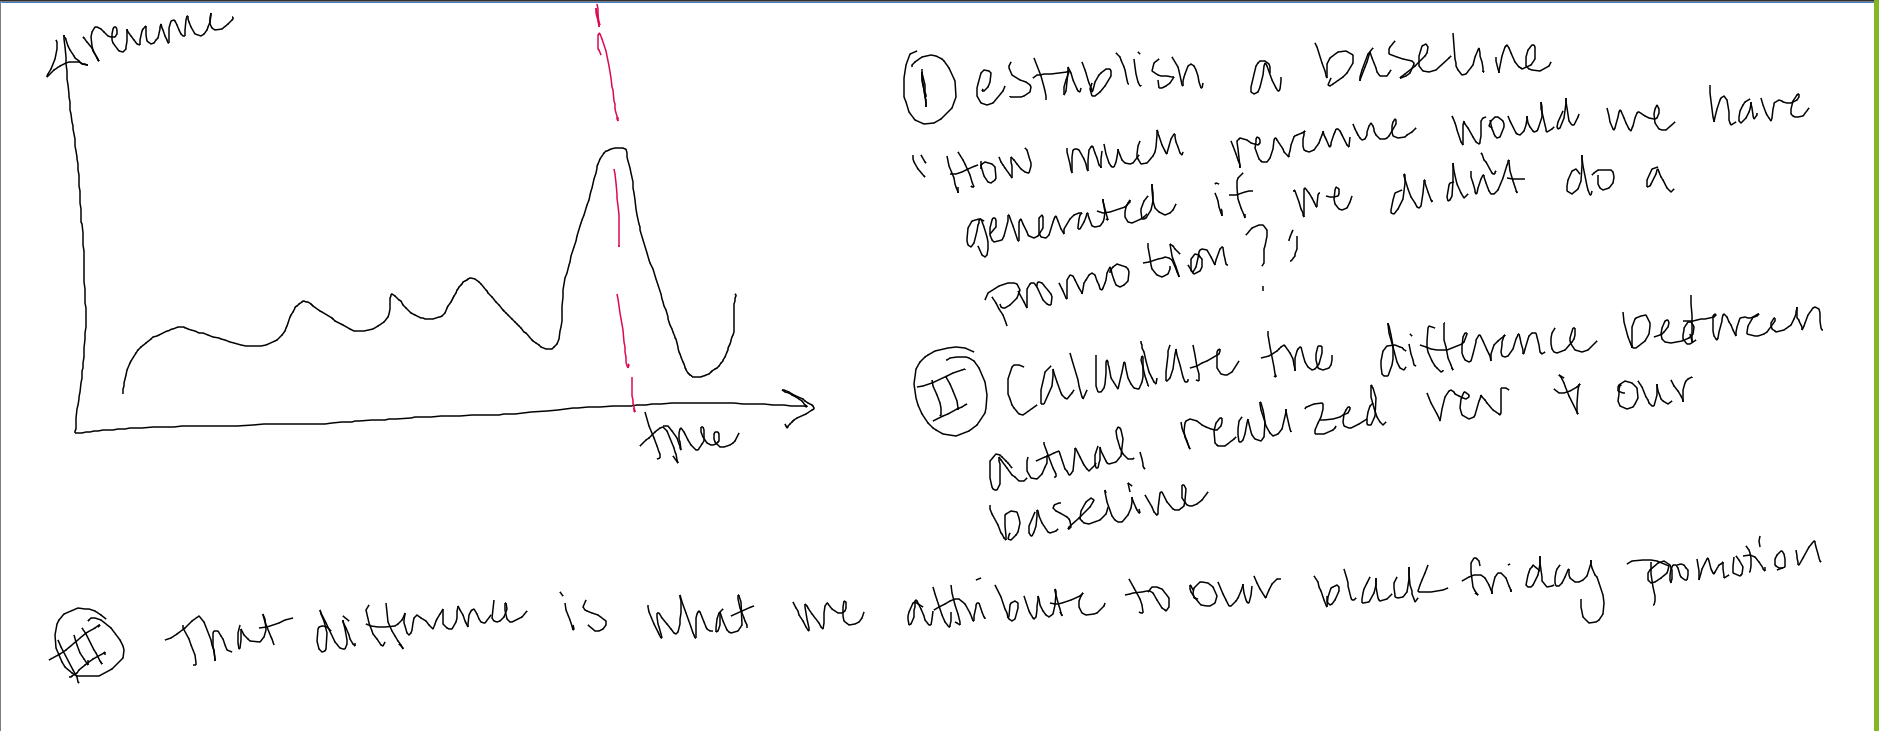 revenue
time
I establish a baseline
"How much revenue would we have
generated if we didn't do a
promotion?"
II Calculate the difference between
actual, realized rev + our
baseline
III That difference is what we attribute to our black friday promotion